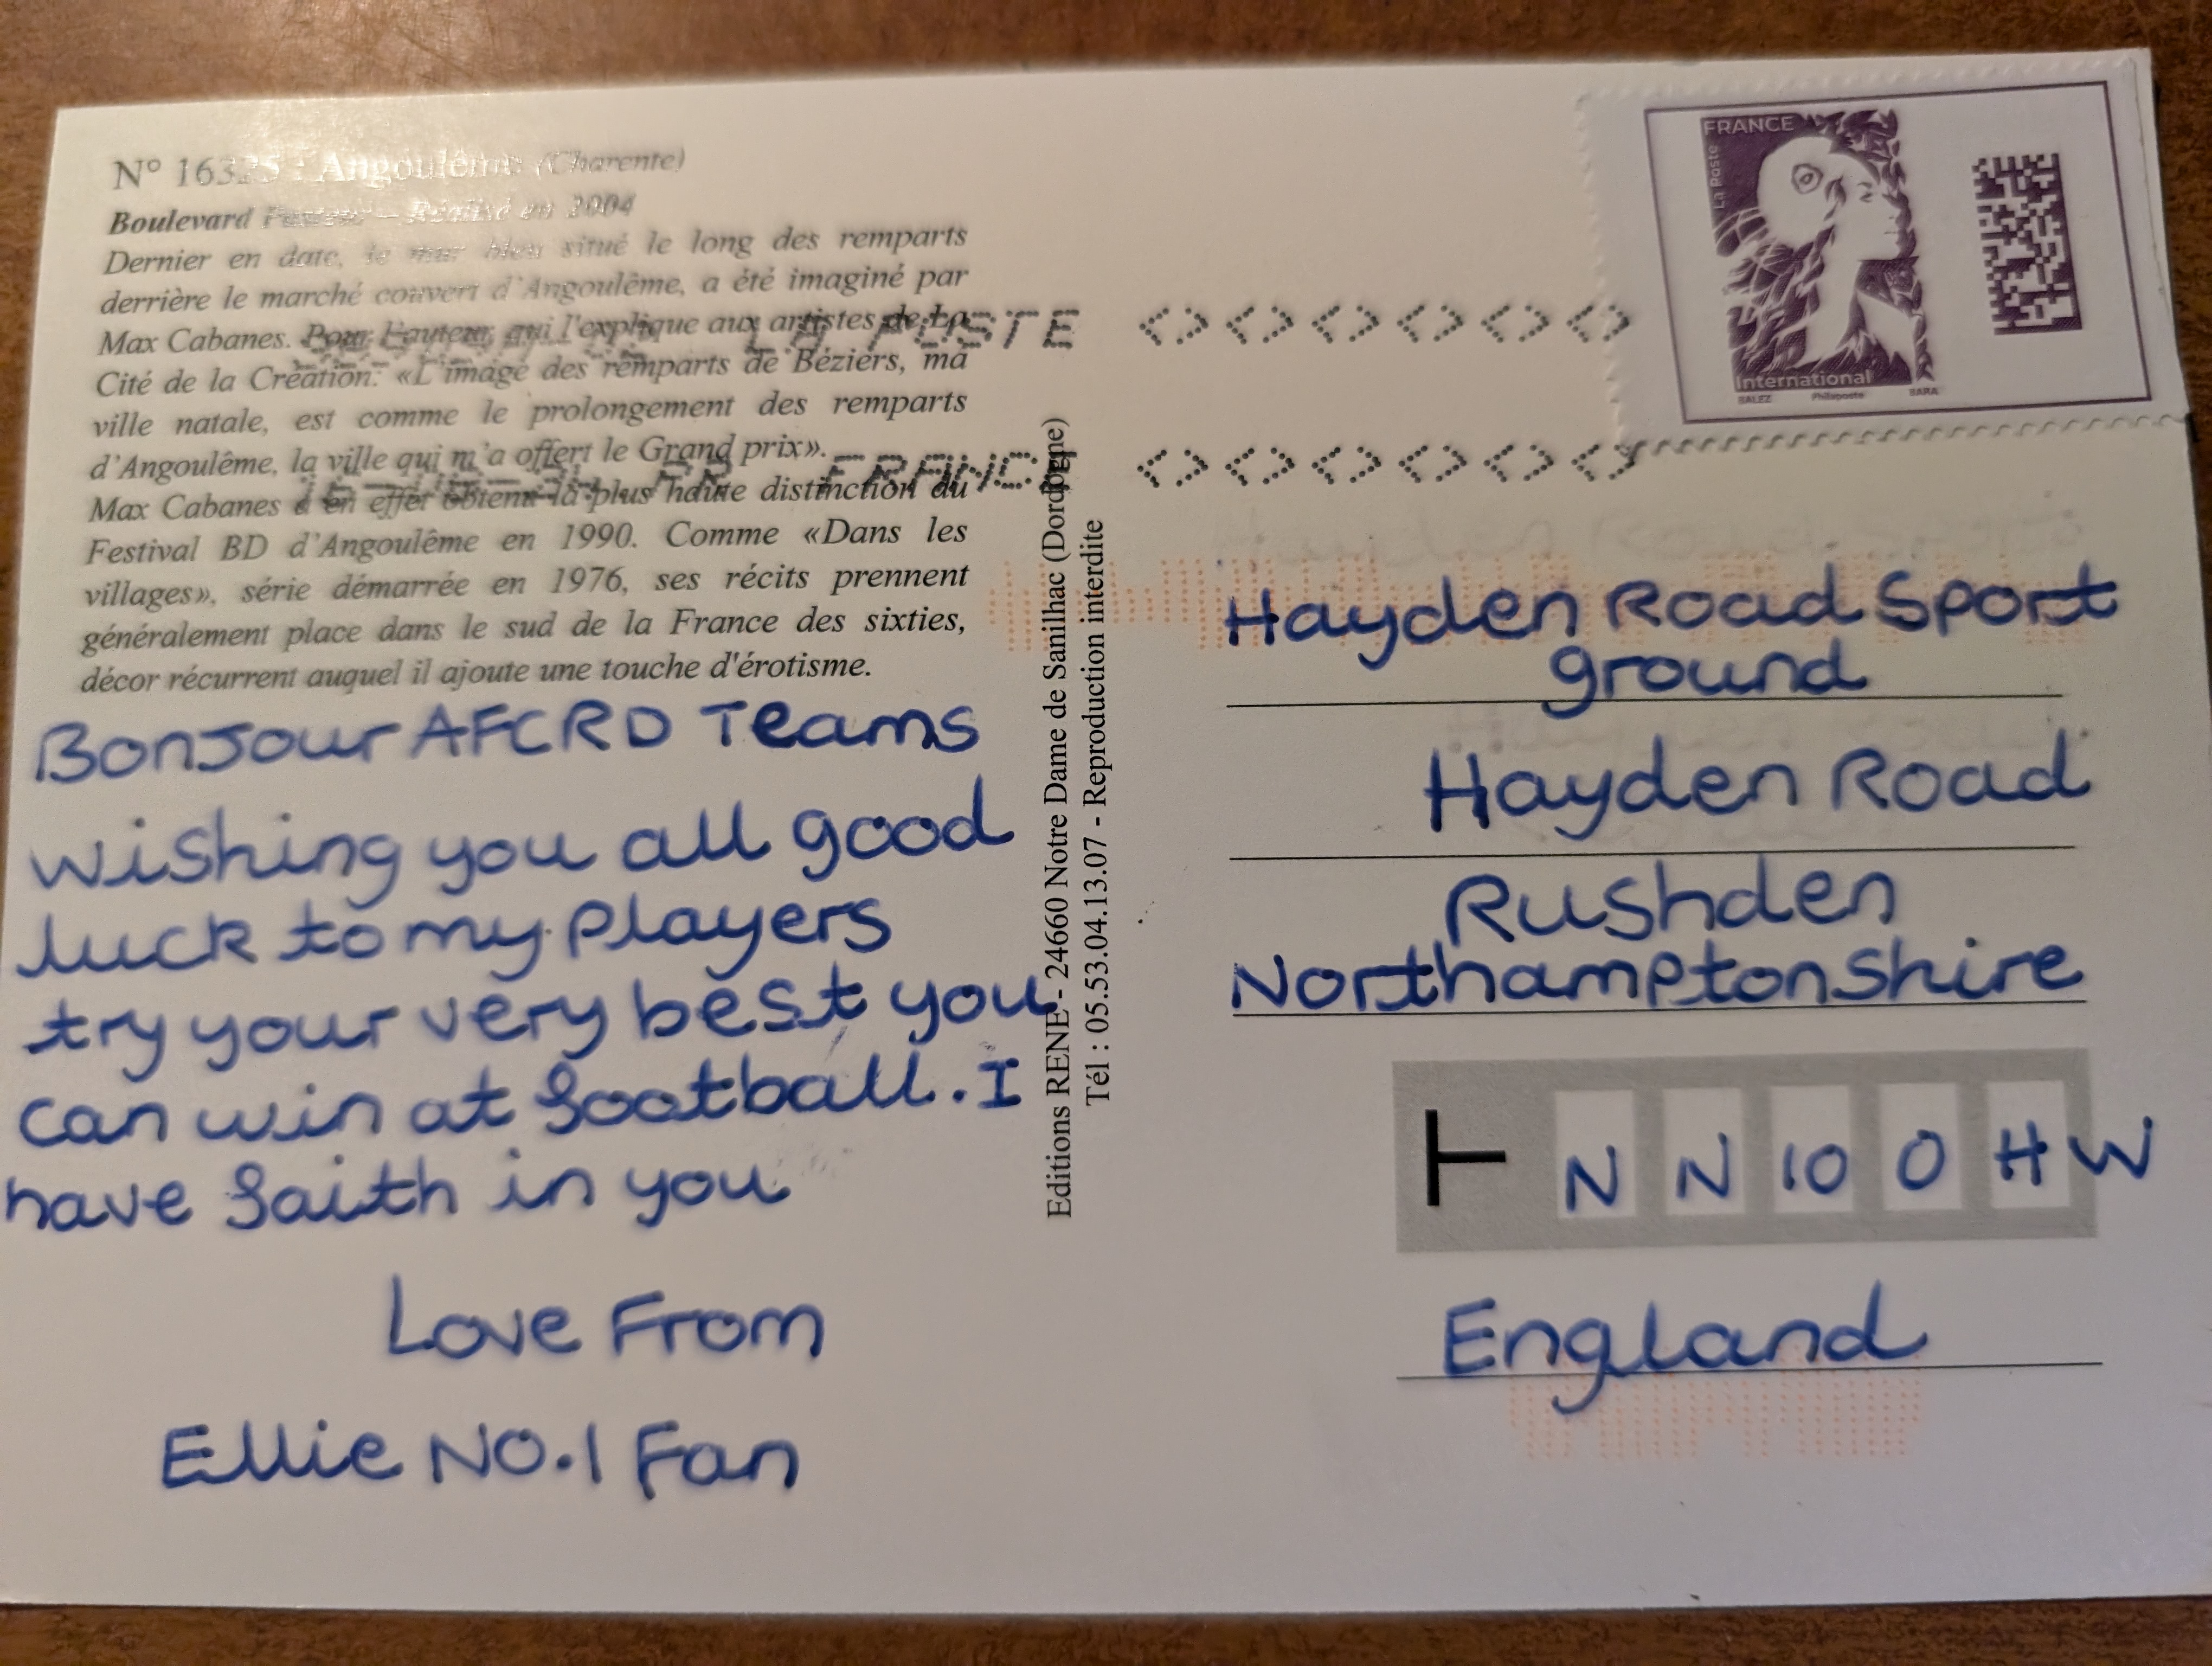 N° 16325 : Angoulême (Charente)
Boulevard Pasteur – Réalisé en 2004
Dernier en date, le mur bleu situé le long des remparts
derrière le marché couvert d'Angoulême, a été imaginé par
Max Cabanes. Pour l'auteur, qui l'explique aux artistes de La
Cité de la Création: «L'image des remparts de Béziers, ma
ville natale, est comme le prolongement des remparts
d'Angoulême, la ville qui m'a offert le Grand prix».
Max Cabanes a en effet obtenu la plus haute distinction du
Festival BD d'Angoulême en 1990. Comme «Dans les
villages», série démarrée en 1976, ses récits prennent
généralement place dans le sud de la France des sixties,
décor récurrent auquel il ajoute une touche d'érotisme.
Bonjour AFCRD Teams
wishing you all good
luck to my players
try your very best you
can win at football. I
have faith in you
Love From
Ellie No.1 Fan
Editions RENE - 24660 Notre Dame de Sanilhac (Dordogne)
Tél : 05.53.04.13.07 - Reproduction interdite
LA POSTE
FRANCE
FRANCE
La Poste
International
SALEZ Philaposte BARA
Hayden Road Sport
ground
Hayden Road
Rushden
Northamptonshire
N N 10 0 H W
England